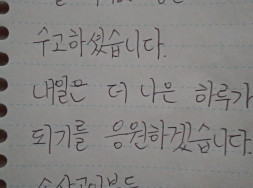 수고하셨습니다.
내일은 더 나은 하루가
되기를 응원하겠습니다.